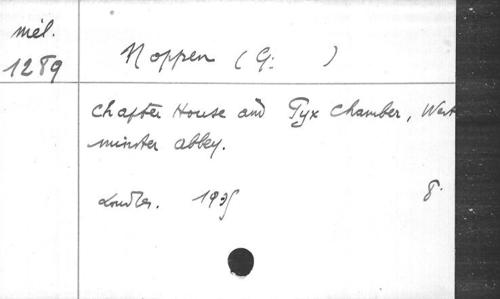 mél.
1289
Noppen (G: )
Chapter House and Pyx Chamber, West
minster abbey.
Londres. 1935 8°